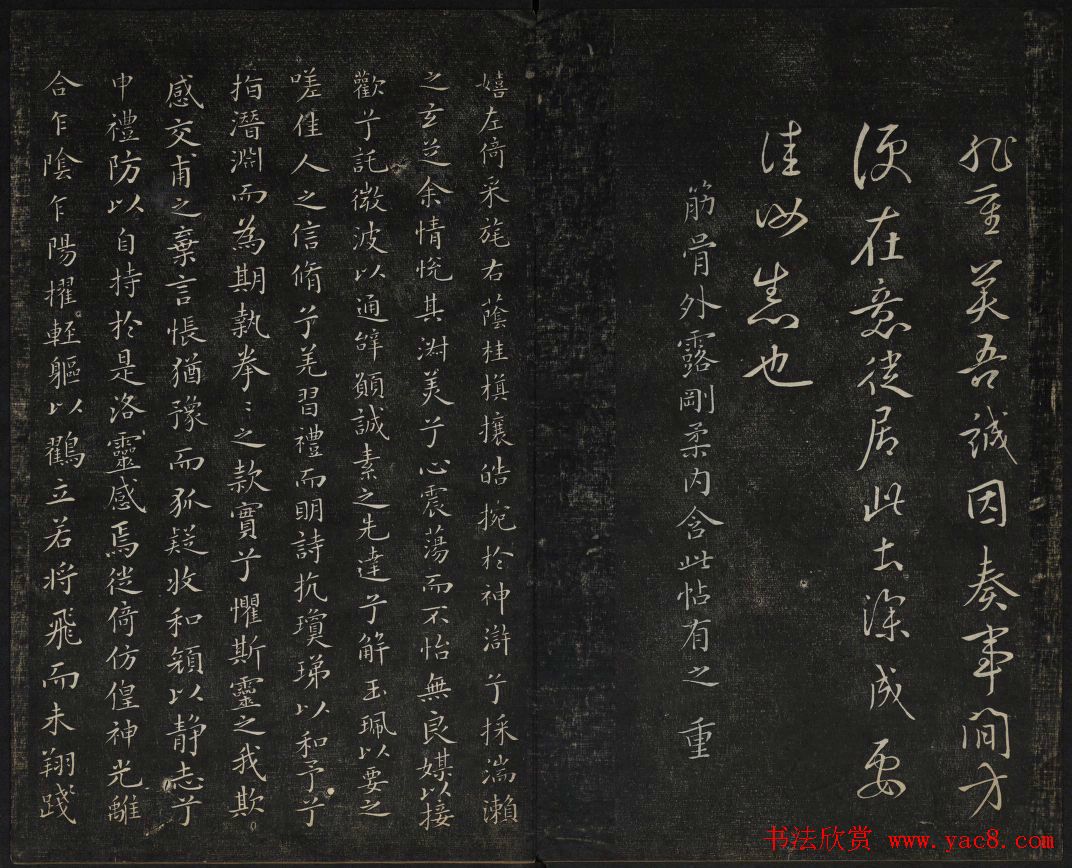 美吾誠因奏事間方
便在意從居此深成要
佳也
筋骨外露剛柔内含此帖有之 重
嬉左倚采旄右蔭桂旗攘皓捥於神滸兮採湍瀨
之玄芝余情恱其淑美兮心震蕩而不怡無良媒以接
歡兮託微波以通辭願誠素之先達兮解玉珮以要之
嗟佳人之信脩兮羌習禮而明詩抗瓊珶以和予兮
指潛淵而為期執拳〻之款實兮懼斯靈之我欺
感交甫之棄言悵猶豫而狐疑收和顏以静志兮
申禮防以自持於是洛靈感焉徙倚仿偟神光離
合乍陰乍陽擢輕軀以鶴立若将飛而未翔踐
书法欣赏 www.yac8.com